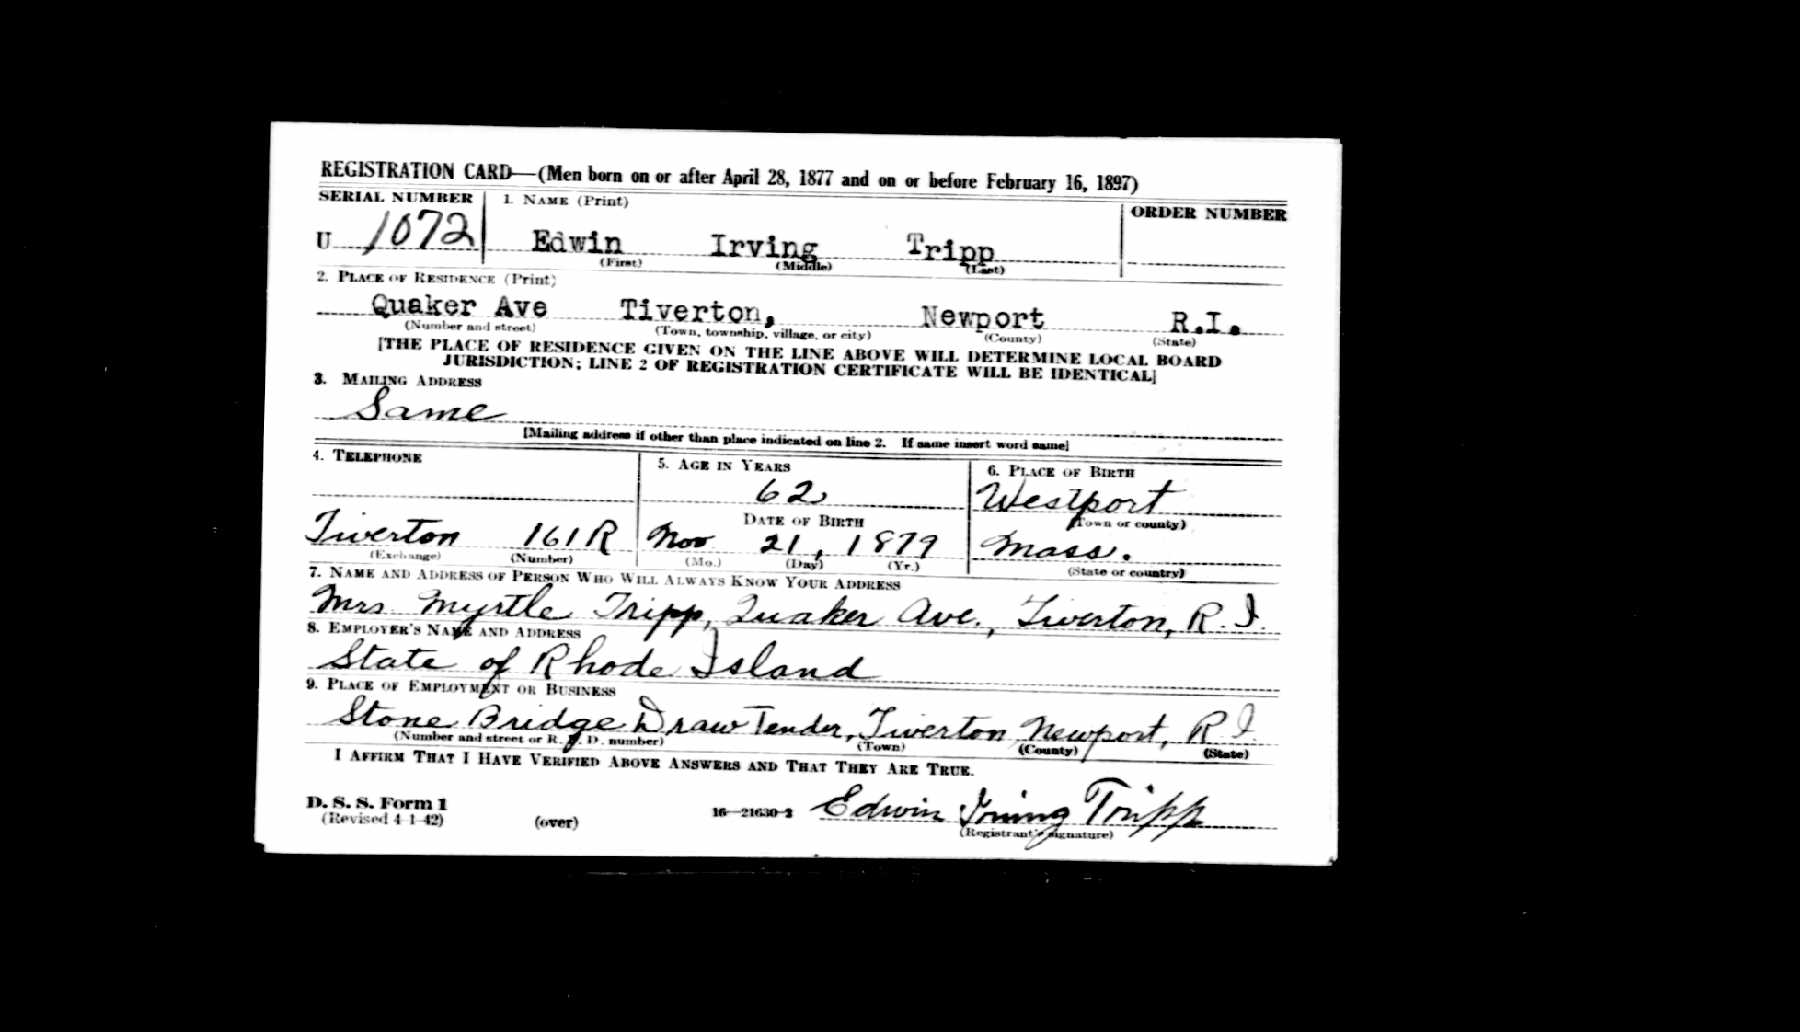 REGISTRATION CARD—(Men born on or after April 28, 1877 and on or before February 16, 1897)
SERIAL NUMBER 1. NAME (Print) ORDER NUMBER
U 1072 Edwin Irving Tripp
(First) (Middle) (Last)
2. PLACE OF RESIDENCE (Print)
Quaker Ave Tiverton, Newport R.I.
(Number and street) (Town, township, village, or city) (County) (State)
[THE PLACE OF RESIDENCE GIVEN ON THE LINE ABOVE WILL DETERMINE LOCAL BOARD
JURISDICTION; LINE 2 OF REGISTRATION CERTIFICATE WILL BE IDENTICAL]
3. MAILING ADDRESS
Same
[Mailing address if other than place indicated on line 2. If same insert word same]
4. TELEPHONE 5. AGE IN YEARS 6. PLACE OF BIRTH
62 Westport
DATE OF BIRTH (Town or county)
Tiverton 161R Nov 21, 1879 Mass.
(Exchange) (Number) (Mo.) (Day) (Yr.) (State or country)
7. NAME AND ADDRESS OF PERSON WHO WILL ALWAYS KNOW YOUR ADDRESS
Mrs Myrtle Tripp, Quaker Ave., Tiverton, R.I.
8. EMPLOYER'S NAME AND ADDRESS
State of Rhode Island
9. PLACE OF EMPLOYMENT OR BUSINESS
Stone Bridge Draw Tender, Tiverton Newport, R I.
(Number and street or R. F. D. number) (Town) (County) (State)
I AFFIRM THAT I HAVE VERIFIED ABOVE ANSWERS AND THAT THEY ARE TRUE.
D. S. S. Form 1
(Revised 4-1-42) (over) 16—21630-2 Edwin Irving Tripp
(Registrant's signature)